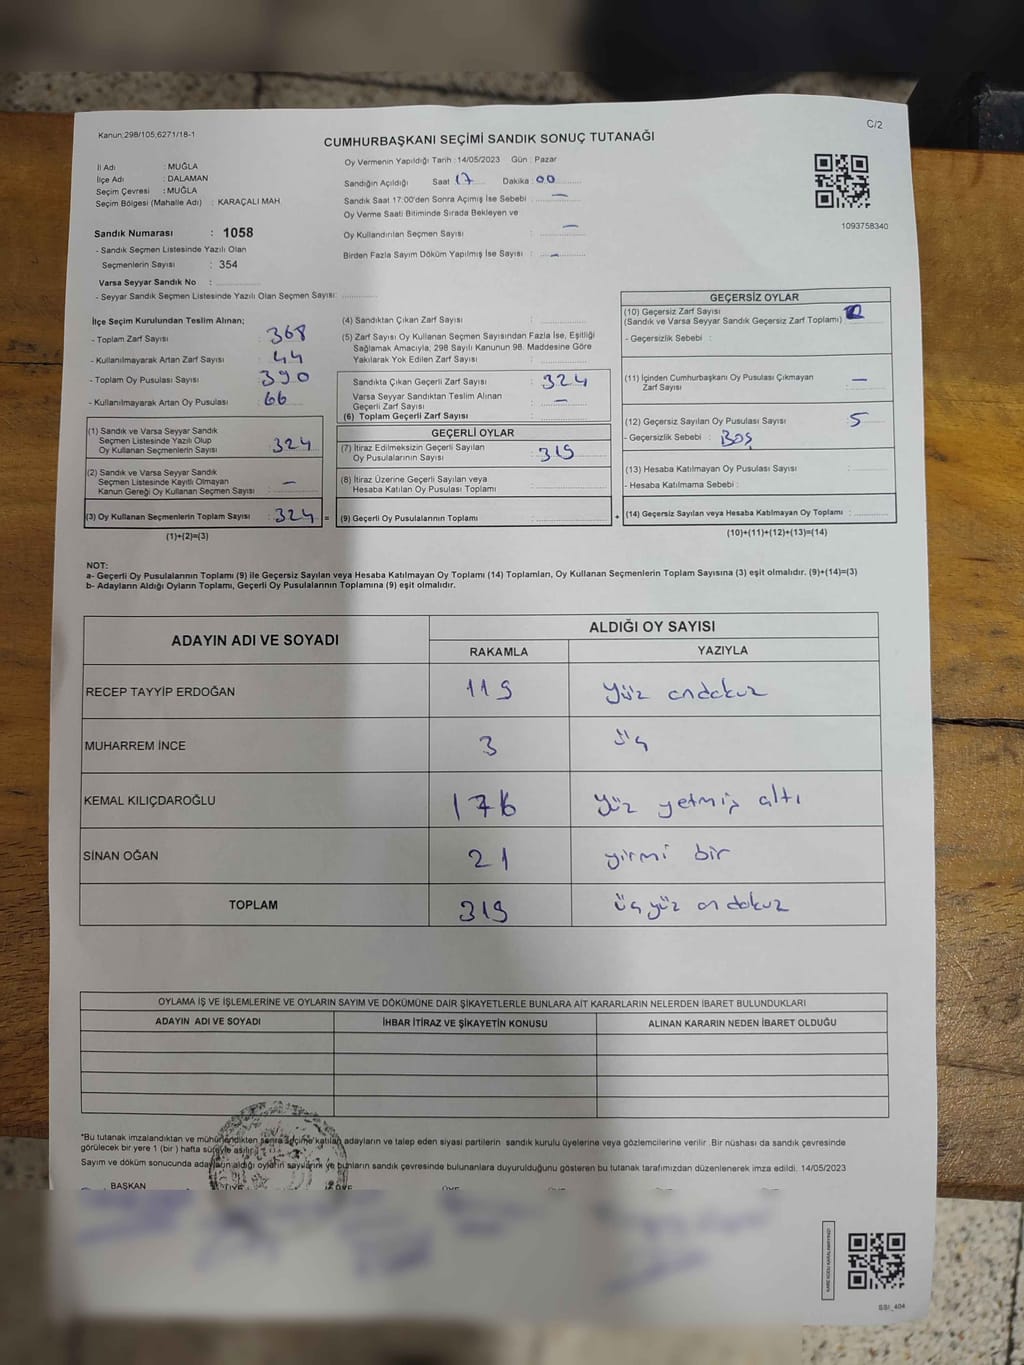 Kanun:298/105;6271/18-1
C/2
CUMHURBAŞKANI SEÇİMİ SANDIK SONUÇ TUTANAĞI
İl Adı : MUĞLA
İlçe Adı : DALAMAN
Seçim Çevresi : MUĞLA
Seçim Bölgesi (Mahalle Adı) : KARAÇALI MAH.
Oy Vermenin Yapıldığı Tarih : 14/05/2023 Gün : Pazar
Sandığın Açıldığı Saat 17 Dakika 00
Sandık Saat 17:00'den Sonra Açımış İse Sebebi : —
Oy Verme Saati Bitiminde Sırada Bekleyen ve
Oy Kullandırılan Seçmen Sayısı : —
Birden Fazla Sayım Döküm Yapılmış İse Sayısı : —
1093758340
Sandık Numarası : 1058
- Sandık Seçmen Listesinde Yazılı Olan
Seçmenlerin Sayısı : 354
Varsa Seyyar Sandık No :
- Seyyar Sandık Seçmen Listesinde Yazılı Olan Seçmen Sayısı:
İlçe Seçim Kurulundan Teslim Alınan;
- Toplam Zarf Sayısı : 368
- Kullanılmayarak Artan Zarf Sayısı : 44
- Toplam Oy Pusulası Sayısı : 390
- Kullanılmayarak Artan Oy Pusulası : 66
(1) Sandık ve Varsa Seyyar Sandık
Seçmen Listesinde Yazılı Olup
Oy Kullanan Seçmenlerin Sayısı : 324
(2) Sandık ve Varsa Seyyar Sandık
Seçmen Listesinde Kayıtlı Olmayan
Kanun Gereği Oy Kullanan Seçmen Sayısı : —
(3) Oy Kullanan Seçmenlerin Toplam Sayısı : 324 =
(1)+(2)=(3)
(4) Sandıktan Çıkan Zarf Sayısı :
(5) Zarf Sayısı Oy Kullanan Seçmen Sayısından Fazla İse, Eşitliği
Sağlamak Amacıyla; 298 Sayılı Kanunun 98. Maddesine Göre
Yakılarak Yok Edilen Zarf Sayısı :
Sandıkta Çıkan Geçerli Zarf Sayısı : 324
Varsa Seyyar Sandıktan Teslim Alınan
Geçerli Zarf Sayısı : —
(6) Toplam Geçerli Zarf Sayısı :
GEÇERLİ OYLAR
(7) İtiraz Edilmeksizin Geçerli Sayılan
Oy Pusulalarının Sayısı : 319
(8) İtiraz Üzerine Geçerli Sayılan veya
Hesaba Katılan Oy Pusulası Toplamı :
(9) Geçerli Oy Pusulalarının Toplamı : +
GEÇERSİZ OYLAR
(10) Geçersiz Zarf Sayısı
(Sandık ve Varsa Seyyar Sandık Geçersiz Zarf Toplamı) :
- Geçersizlik Sebebi :
(11) İçinden Cumhurbaşkanı Oy Pusulası Çıkmayan
Zarf Sayısı : —
(12) Geçersiz Sayılan Oy Pusulası Sayısı : 5
- Geçersizlik Sebebi : BOŞ
(13) Hesaba Katılmayan Oy Pusulası Sayısı :
- Hesaba Katılmama Sebebi :
(14) Geçersiz Sayılan veya Hesaba Katılmayan Oy Toplamı :
(10)+(11)+(12)+(13)=(14)
NOT:
a- Geçerli Oy Pusulalarının Toplamı (9) ile Geçersiz Sayılan veya Hesaba Katılmayan Oy Toplamı (14) Toplamları, Oy Kullanan Seçmenlerin Toplam Sayısına (3) eşit olmalıdır. (9)+(14)=(3)
b- Adayların Aldığı Oyların Toplamı, Geçerli Oy Pusulalarının Toplamına (9) eşit olmalıdır.
ADAYIN ADI VE SOYADI ALDIĞI OY SAYISI
RAKAMLA YAZIYLA
RECEP TAYYİP ERDOĞAN 119 Yüz ondokuz
MUHARREM İNCE 3 üç
KEMAL KILIÇDAROĞLU 176 Yüz yetmiş altı
SİNAN OĞAN 21 yirmi bir
TOPLAM 319 üçyüz ondokuz
OYLAMA İŞ VE İŞLEMLERİNE VE OYLARIN SAYIM VE DÖKÜMÜNE DAİR ŞİKAYETLERLE BUNLARA AİT KARARLARIN NELERDEN İBARET BULUNDUKLARI
ADAYIN ADI VE SOYADI İHBAR İTİRAZ VE ŞİKAYETİN KONUSU ALINAN KARARIN NEDEN İBARET OLDUĞU
*Bu tutanak imzalandıktan ve mühürlendikten sonra seçime katılan adayların ve talep eden siyasi partilerin sandık kurulu üyelerine veya gözlemcilerine verilir. Bir nüshası da sandık çevresinde
görülecek bir yere 1 (bir) hafta süreyle asılır.
Sayım ve döküm sonucunda adayların aldığı oyların sayılarını ve bunların sandık çevresinde bulunanlara duyurulduğunu gösteren bu tutanak tarafımızdan düzenlenerek imza edildi. 14/05/2023
BAŞKAN ÜYE ÜYE ÜYE ÜYE ÜYE ÜYE
SSI_404